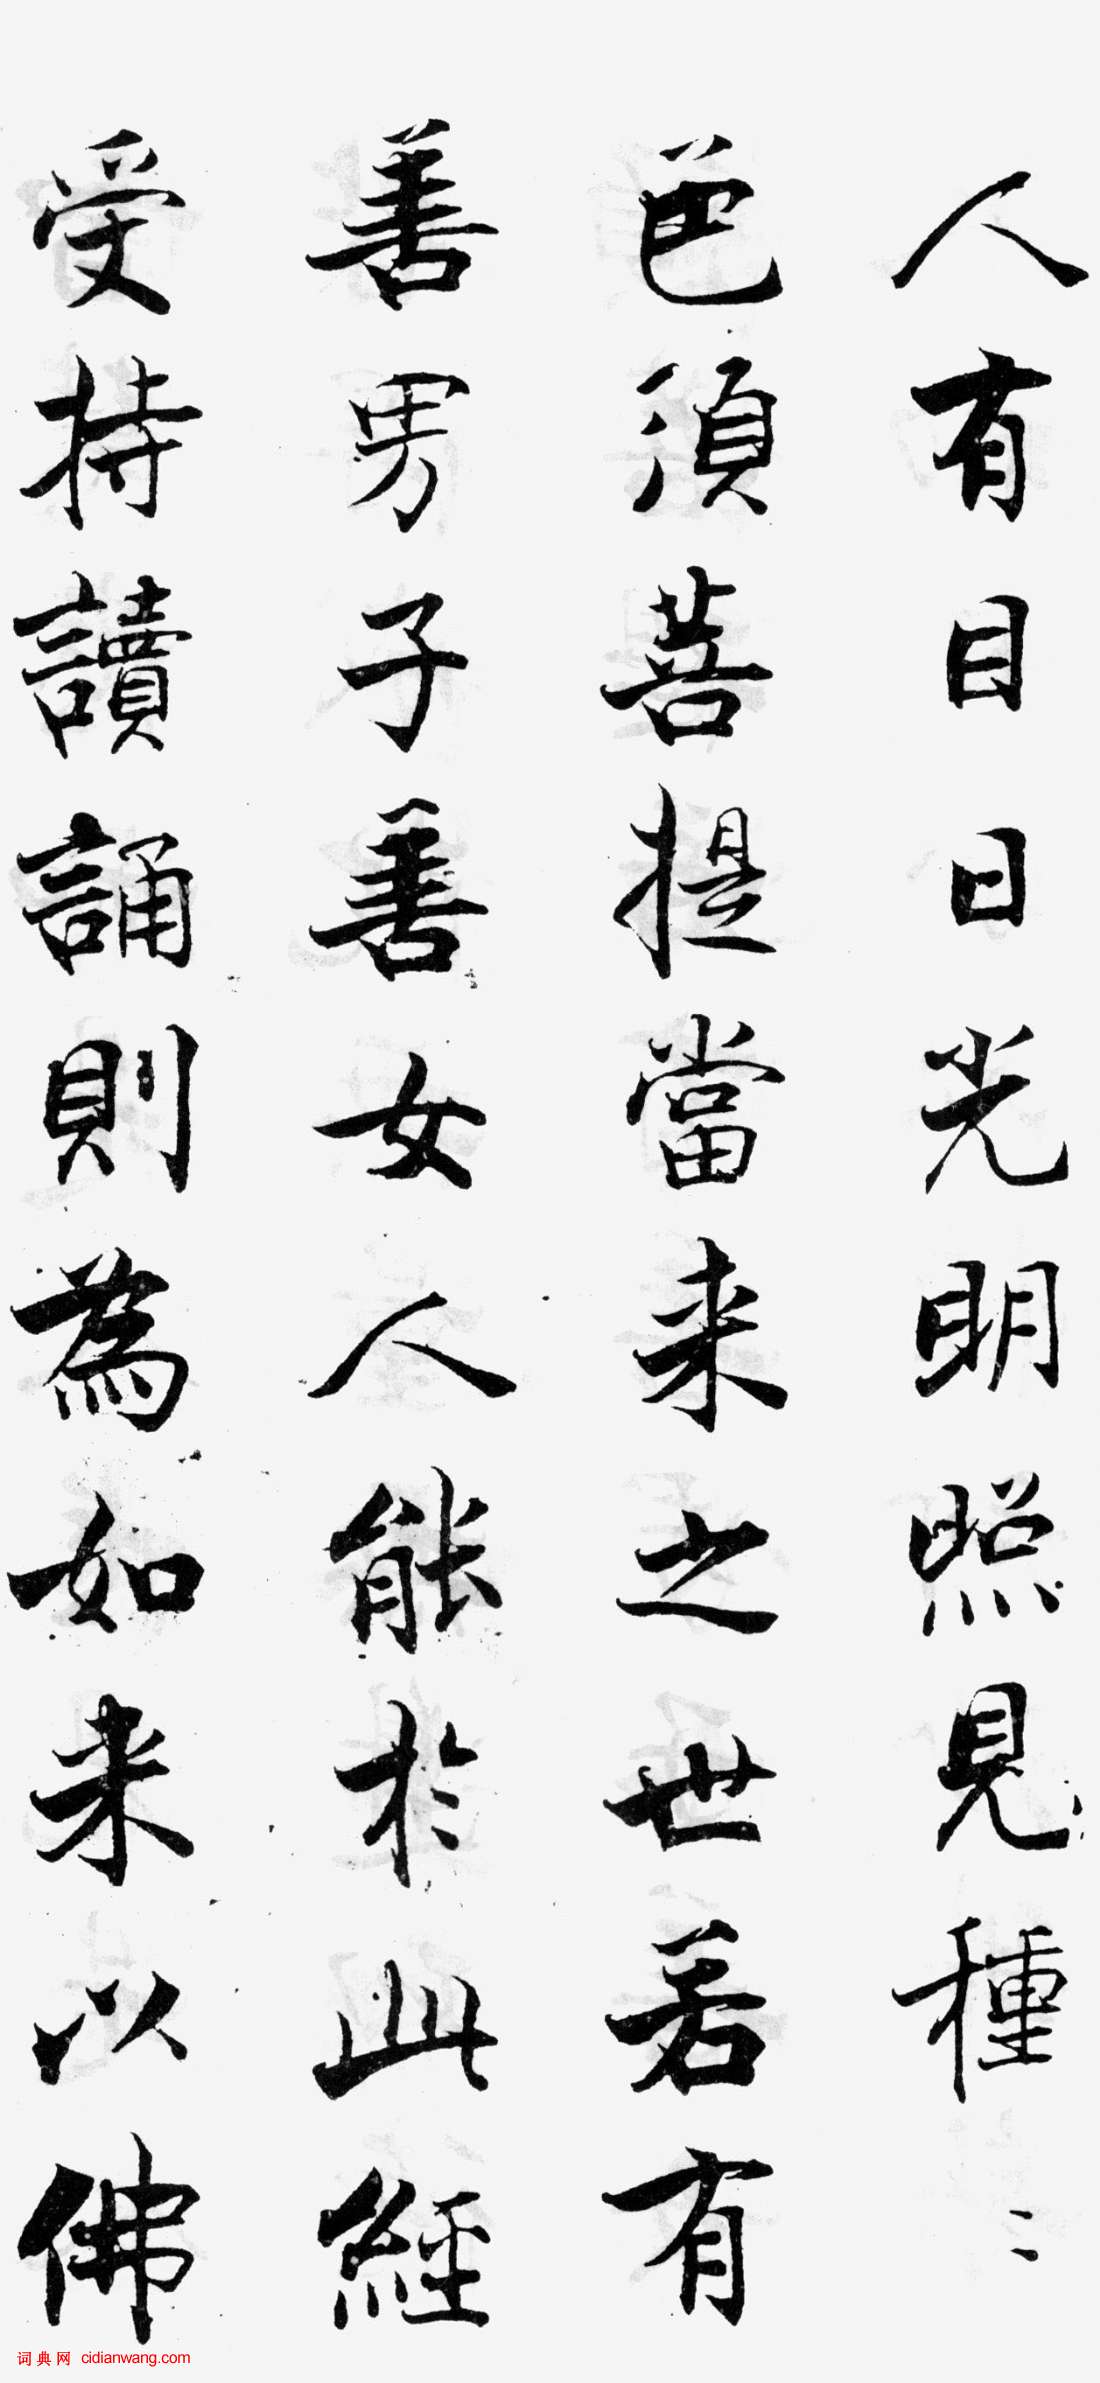 人有目日光明照見種〻
色須菩提當来之世若有
善男子善女人能於此經
受持讀誦則為如来以佛
词典网 cidianwang.com